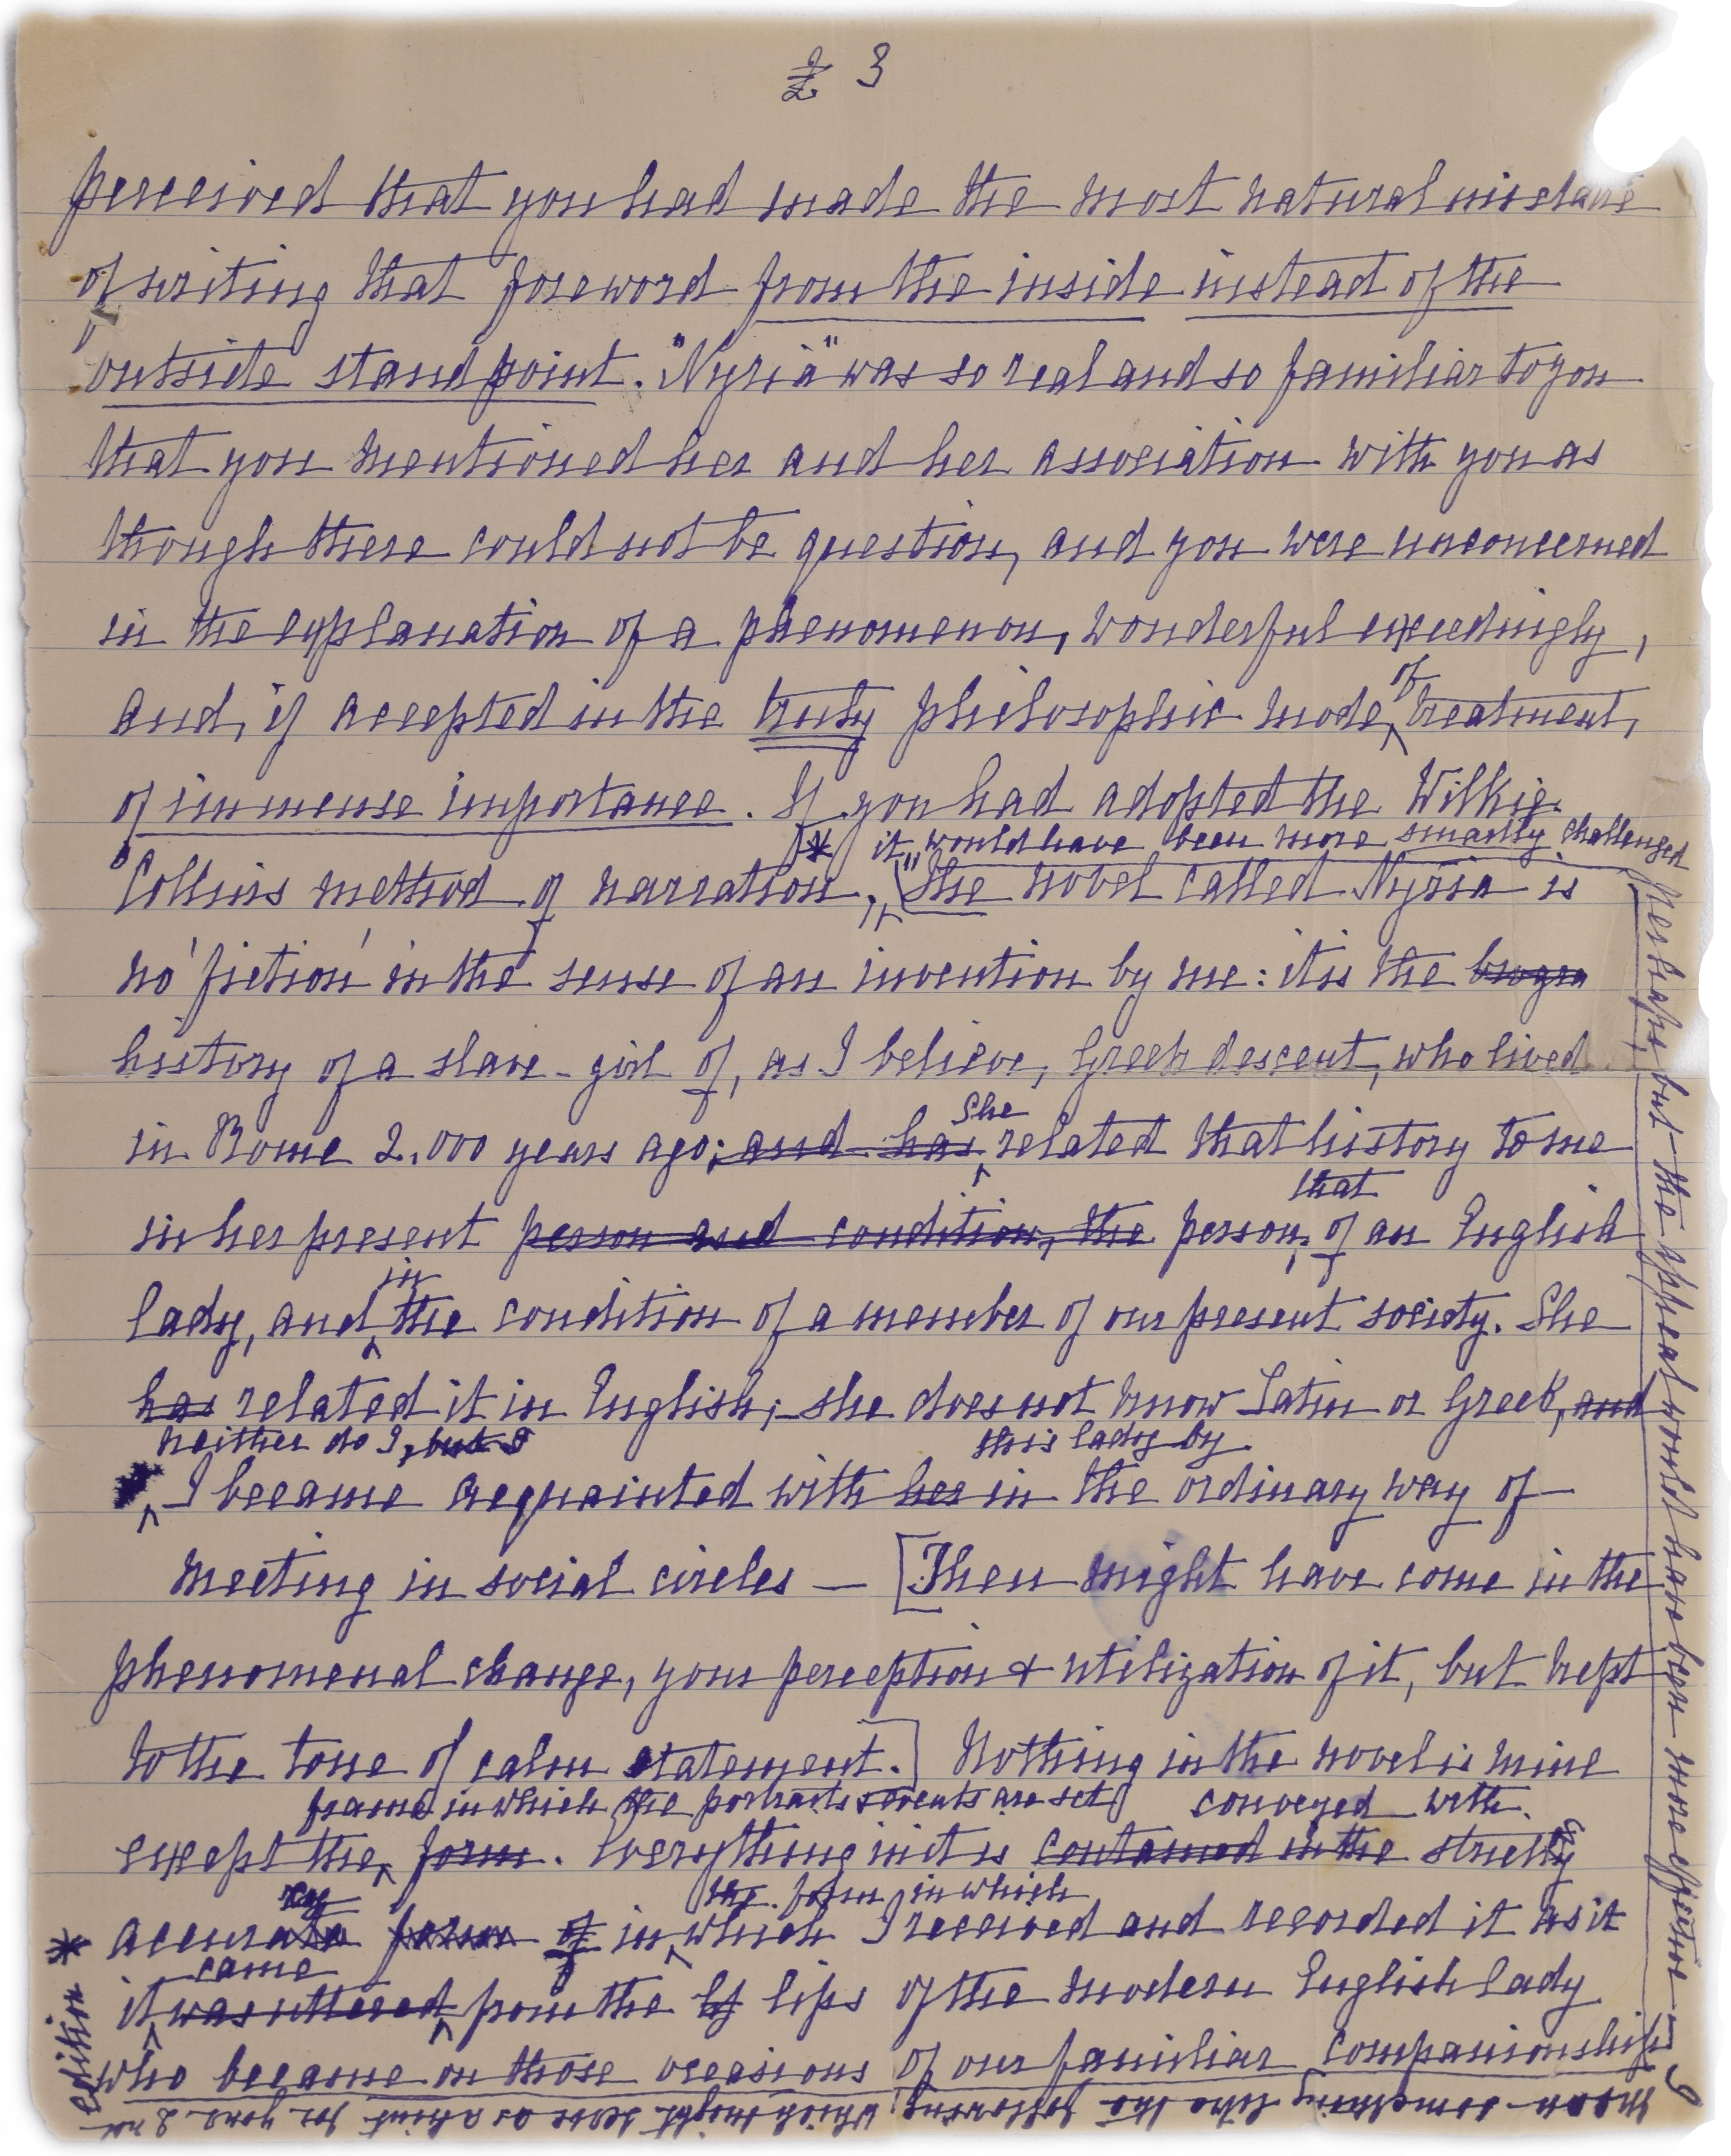 2 3
perceived that you had made the most natural mistake
of writing that foreword from the inside instead of the
outside standpoint. "Nyria" was so real and so familiar to you
that you mentioned her and her association with you as
though there could not be question, and you were unconcerned
in the explanation of a phenomenon, wonderful exceedingly,
of
and, if accepted in the truly philosophic mode treatment,
of immense importance. If you had adopted the Wilkie
* it would have been more smartly challenged
Collins method of narration, "The novel called Nyria is
no 'fiction' in the sense of an invention by me: it is the
history of a slave-girl of, as I believe, Greek descent, who lived
She
in Rome 2,000 years ago; and has related that history to me
that
in her present person and condition, the person, of an English
in
lady, and the condition of a member of our present society. She
has related it in English; she does not know Latin or Greek, and
neither do I, but I this lady by
I became acquainted with her in the ordinary way of
meeting in social circles — [Then might have come in the
phenomenal change, your perception & utilization of it, but kept
to the tone of calm statement.] Nothing in the novel is mine
frame in which the portraits & events are set conveyed with
except the form. Everything in it is contained in the strictly
the form in which
accurate form of in which I received and recorded it as it
came
it was uttered from the lips of the modern English lady
who became on those occasions of our familiar companionship
perhaps, but the appeal would have been more effective —
* mean something like the following, which might serve as a hint for your 2nd
edition *